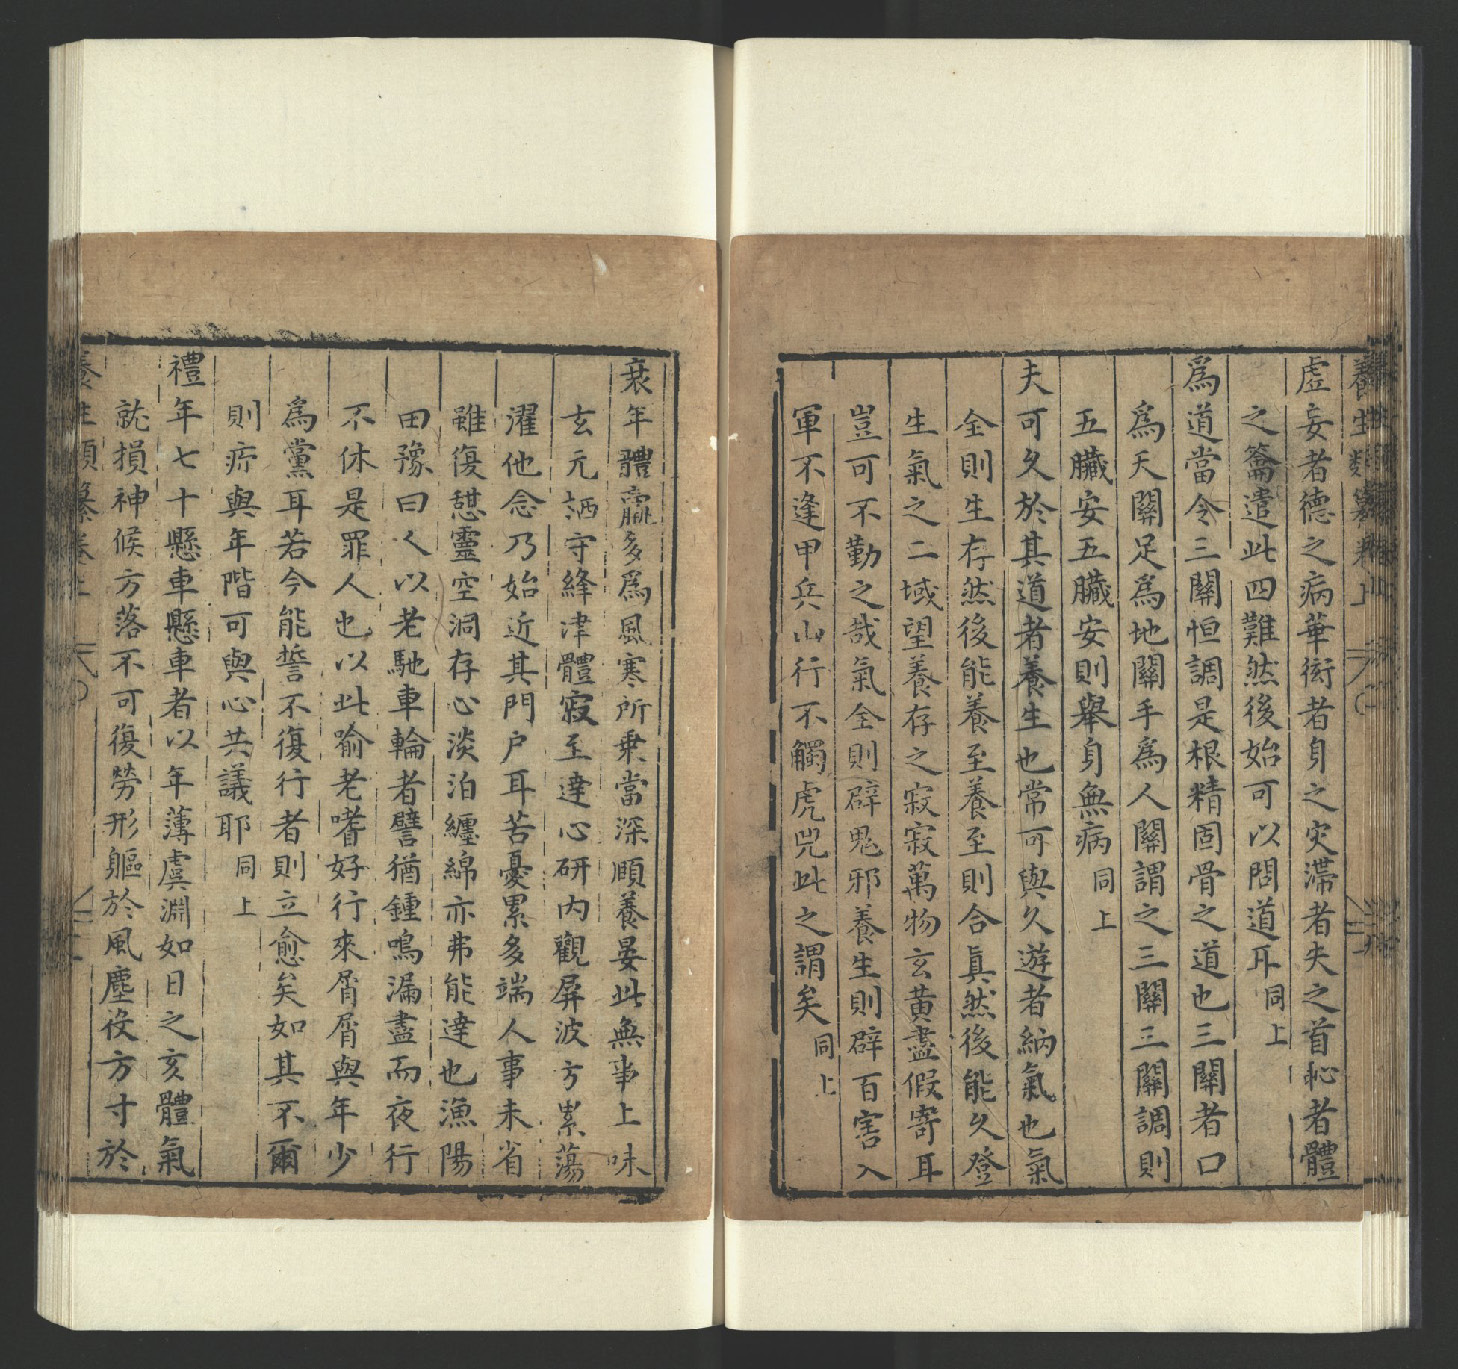 養生類纂卷上
虛妄者德之病華衒者身之灾滯者失之首恥者體
之籥遣此四難然後始可以問道耳同上
爲道當令三關恒調是根精固骨之道也三關者口
爲天關足爲地關手爲人關謂之三關三關調則
五臟安五臟安則舉身無病同上
夫可久於其道者養生也常可與久遊者納氣也氣
全則生存然後能養至養至則合眞然後能久登
生氣之二域望養存之寂寂萬物玄黃盡假寄耳
豈可不勤之哉氣全則辟鬼邪養生則辟百害入
軍不逢甲兵山行不觸虎兕此之謂矣同上
衰年體羸多爲風寒所乗當深頤養晏此無事上味
玄元栖守絳津體寂至達心研内觀屏波方累蕩
濯他念乃始近其門户耳苦憂累多端人事未省
雖復憇靈空洞存心淡泊纏綿亦弗能達也漁陽
田豫曰人以老馳車輪者譬猶鍾鳴漏盡而夜行
不休是罪人也以此喻老嗜好行來屑屑與年少
爲黨耳若今能誓不復行者則立愈矣如其不爾
則疥與年階可與心共議耶同上
禮年七十懸車懸車者以年薄虞淵如日之亥體氣
就損神候方落不可復勞形軀於風塵役方寸於
養生類纂卷上